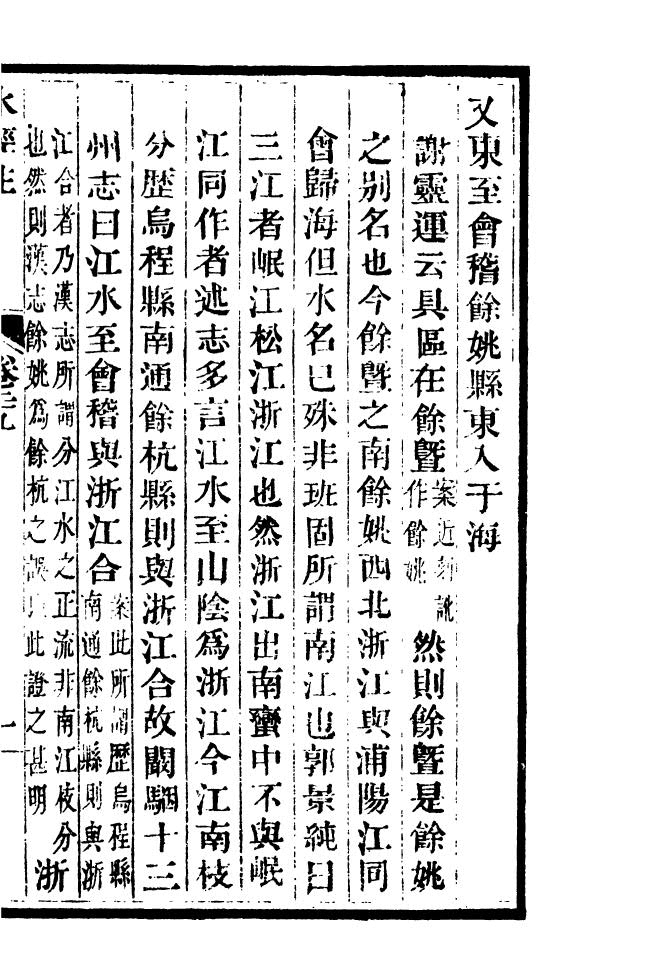 又東至會稽餘姚縣東入于海
謝靈運云具區在餘暨案近刻訛作餘姚然則餘暨是餘姚
之别名也今餘暨之南餘姚西北浙江與浦陽江同
會歸海但水名已殊非班固所謂南江也郭景純曰
三江者岷江松江浙江也然浙江出南蠻中不與岷
江同作者述志多言江水至山陰為浙江今江南枝
分歴烏程縣南通餘杭縣則與浙江合故闞駰十三
州志曰江水至會稽與浙江合案此所謂歴烏程縣南通餘杭縣則與浙
江合者乃漢志所謂分江水之正流非南江枝分也然則漢志餘姚為餘杭之誤此證之甚明浙
水經注
卷二十九
十一